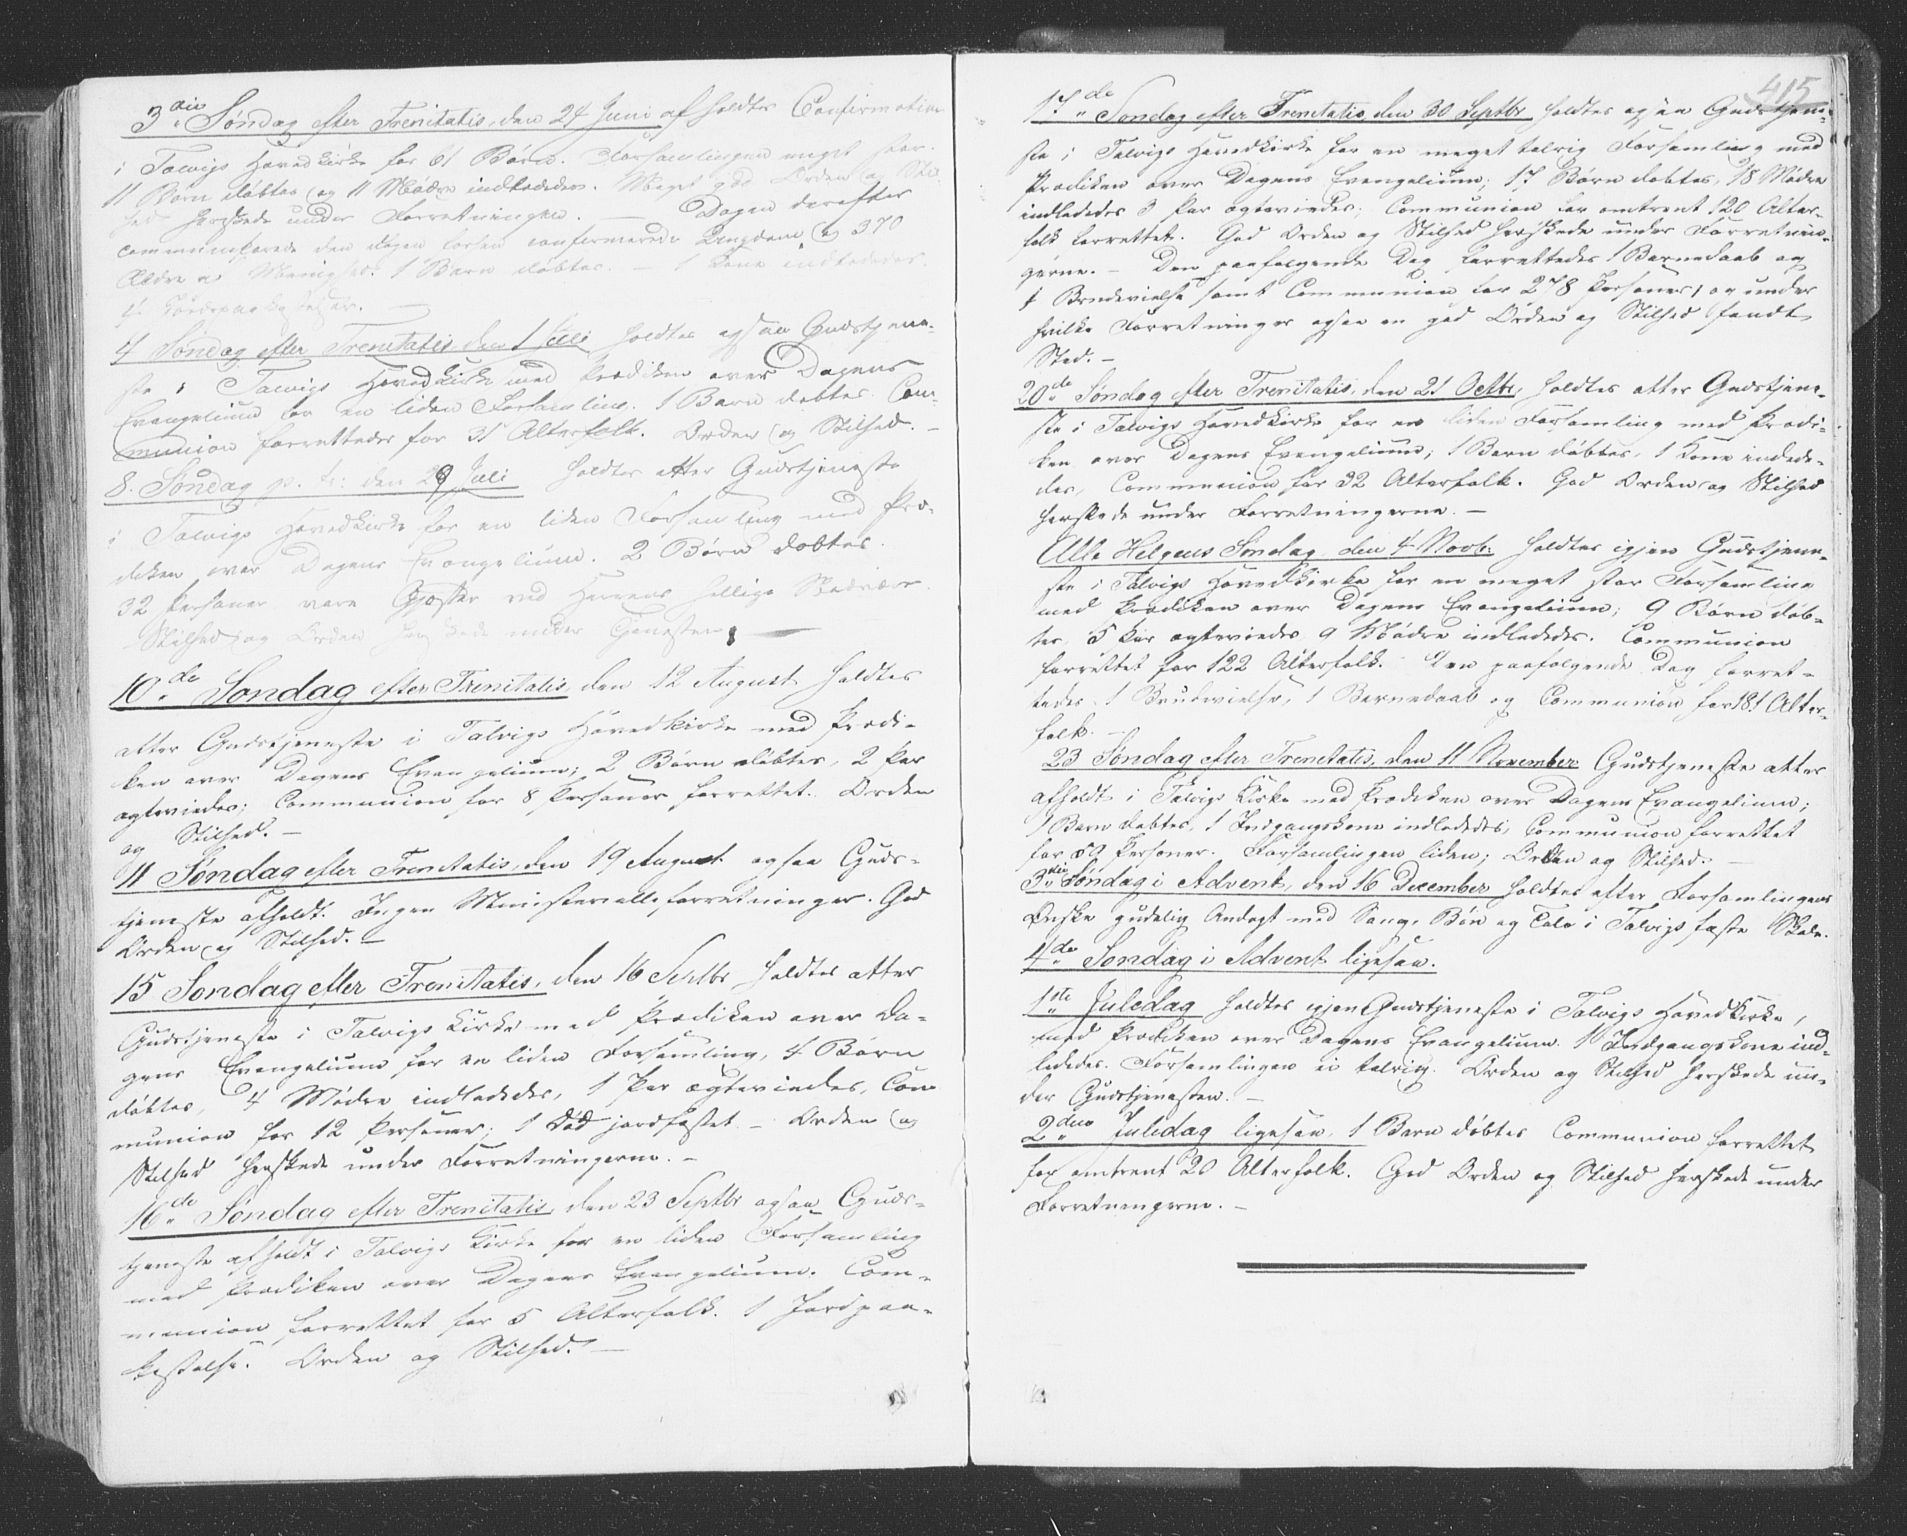 3die Søndag efter Trenitatis, den 24 Juni afholdtes Confirmation
i Talvigs Hovedkirke for 61 Børn. Forsamlingen meget stor.
11 Børn døbtes og 11 Mødre indlededes. Meget god Orden og Stil-
hed herskede under Forretningen. — Dagen derefter
communicerede den Dagen forhen confirmerede Ungdom og 370
Ældre af Menighed. 1 Barn døbtes. — 1 Kone indlededes.
4 Jordpaakastelser.
4 Søndag efter Trenitatis den 1 Juli holdtes ogsaa Gudstjene-
ste i Talvigs Hovedkirke med Prædiken over Dagens
Evangelium for en liden Forsamling. 1 Barn døbtes. Com-
munion forrettedes for 31 Alterfolk. Orden og Stilhed. —
8. Søndag p. tr: den 29 Juli holdtes atter Gudstjeneste
i Talvigs Hovedkirke for en liden Forsamling med Præ-
diken over Dagens Evangelium. 2 Børn døbtes.
32 Personer vare Gjester ved Herrens hellige Nadvere.
Stilhed og Orden herskede under Tjenesten. —
10de Søndag efter Trenitatis, den 12 August holdtes
atter Gudstjeneste i Talvigs Hovedkirke med Prædi-
ken over Dagens Evangelium; 2 Børn døbtes, 2 Par
ægteviedes; Communion for 8 Personer forrettet. Orden
og Stilhed. —
11 Søndag efter Trenitatis, den 19 August ogsaa Guds-
tjeneste afholdt. Ingen Ministerialforretninger. God
Orden og Stilhed. —
15 Søndag efter Trenitatis, den 16 Septbr holdtes atter
Gudstjeneste i Talvigs Kirke med Prædiken over Da-
gens Evangelium for en liden Forsamling, 4 Børn
døbtes, 4 Mødre indlededes, 1 Par ægteviedes, Com-
munion for 12 Personer; 1 Død jordfæstet. — Orden og
Stilhed herskede under Forretningerne. —
16de Søndag efter Trenitatis, den 23 Septbr ogsaa Guds-
tjeneste afholdt i Talvigs Kirke for en liden Forsamling
med Prædiken over Dagens Evangelium. Com-
munion forrettet for 5 Alterfolk. 1 Jordpaa-
kastelse. Orden og Stilhed. —
415
17de Søndag efter Trenitatis, den 30 Septbr holdtes ogsaa Gudstjene-
ste i Talvigs Hovedkirke for en meget talrig Forsamling med
Prædiken over Dagens Evangelium; 17 Børn døbtes, 18 Mødre
indlededes 3 Par ægteviedes; Communion for omtrent 120 Alter-
folk forrettet. God Orden og Stilhed herskede under Forretnin-
gerne. — Den paafølgende Dag forrettedes 1 Barnedaab og
1 Brudevielse samt Communion for 278 Personer, og under
hvilke Forretninger ogsaa en god Orden og Stilhed fandt
Sted. —
20de Søndag efter Trenitatis, den 21 Octbr, holdtes atter Gudstjene-
ste i Talvigs Hovedkirke for en liden Forsamling med Prædi-
ken over Dagens Evangelium; 1 Barn døbtes, 1 Kone indlede-
des, Communion for 32 Alterfolk. God Orden og Stilhed
herskede under Forretningerne. —
Alle Helgens Søndag, den 4 Novb: holdtes igjen Gudstjene-
ste i Talvigs Hovedkirke for en meget stor Forsamling
med Prædiken over Dagens Evangelium; 9 Børn døb-
tes, 5 Par ægteviedes 9 Mødre indlededes. Communion
forrettet for 122 Alterfolk. Den paafølgende Dag forret-
tedes 1 Brudevielse, 1 Barnedaab og Communion for 181 Alter-
folk. —
23 Søndag efter Trenitatis, den 11 November Gudstjeneste atter
afholdt i Talvigs Kirke med Prædiken over Dagens Evangelium;
1 Barn døbtes, 1 Indgangskone indlededes, Communion forrettet
for 59 Personer. Forsamlingen liden; Orden og Stilhed. —
3die Søndag i Advent, den 16 December holdtes efter Forsamlingens
Ønske gudelig Andagt med Sang, Bøn og Tale i Talvigs faste Skole.
4de Søndag i Advent ligesaa.
1ste Juledag holdtes igjen Gudstjeneste i Talvigs Hovedkirke,
med Prædiken over Dagens Evangelium. 1 Indgangskone ind-
lededes. Forsamlingen ei talrig. Orden og Stilhed herskede un-
der Gudstjenesten. —
2den Juledag ligesaa, 1 Barn døbtes Communion forrettet
for omtrent 20 Alterfolk. God Orden og Stilhed herskede under
Forretningerne. —